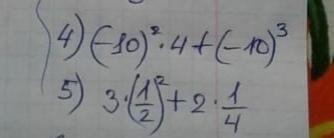 4) (-10)² · 4 + (-10)³
5) 3 · (1/2)² + 2 · 1/4